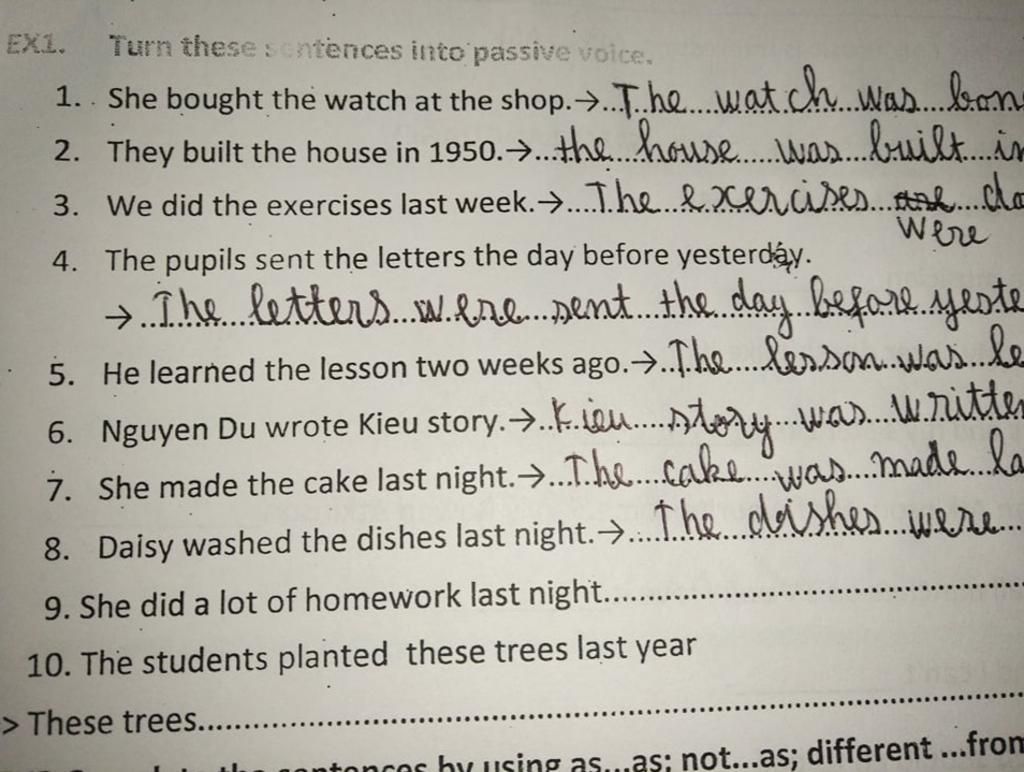 EX1. Turn these sentences into passive voice.
1. She bought the watch at the shop.→..The...watch...was...
2. They built the house in 1950.→...the...house.....was...built....
3. We did the exercises last week.→....The...exercises...are....
were
4. The pupils sent the letters the day before yesterday.
→..The...letters...were...sent...the...day...before
5. He learned the lesson two weeks ago.→..The....lesson...was...
6. Nguyen Du wrote Kieu story.→..Kieu....story...was...written
7. She made the cake last night.→...The....cake....was...made...
8. Daisy washed the dishes last night.→....The...dishes...were...
9. She did a lot of homework last night..........................................
10. The students planted these trees last year
> These trees..........................................................................
by using as...as; not...as; different ...from